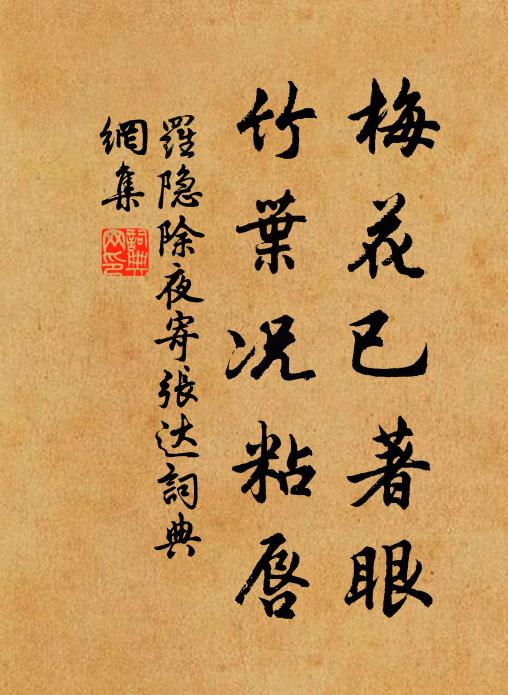 梅花已著眼
竹葉况粘唇
羅隐除夜寄張达詞典
網集
詞典网印